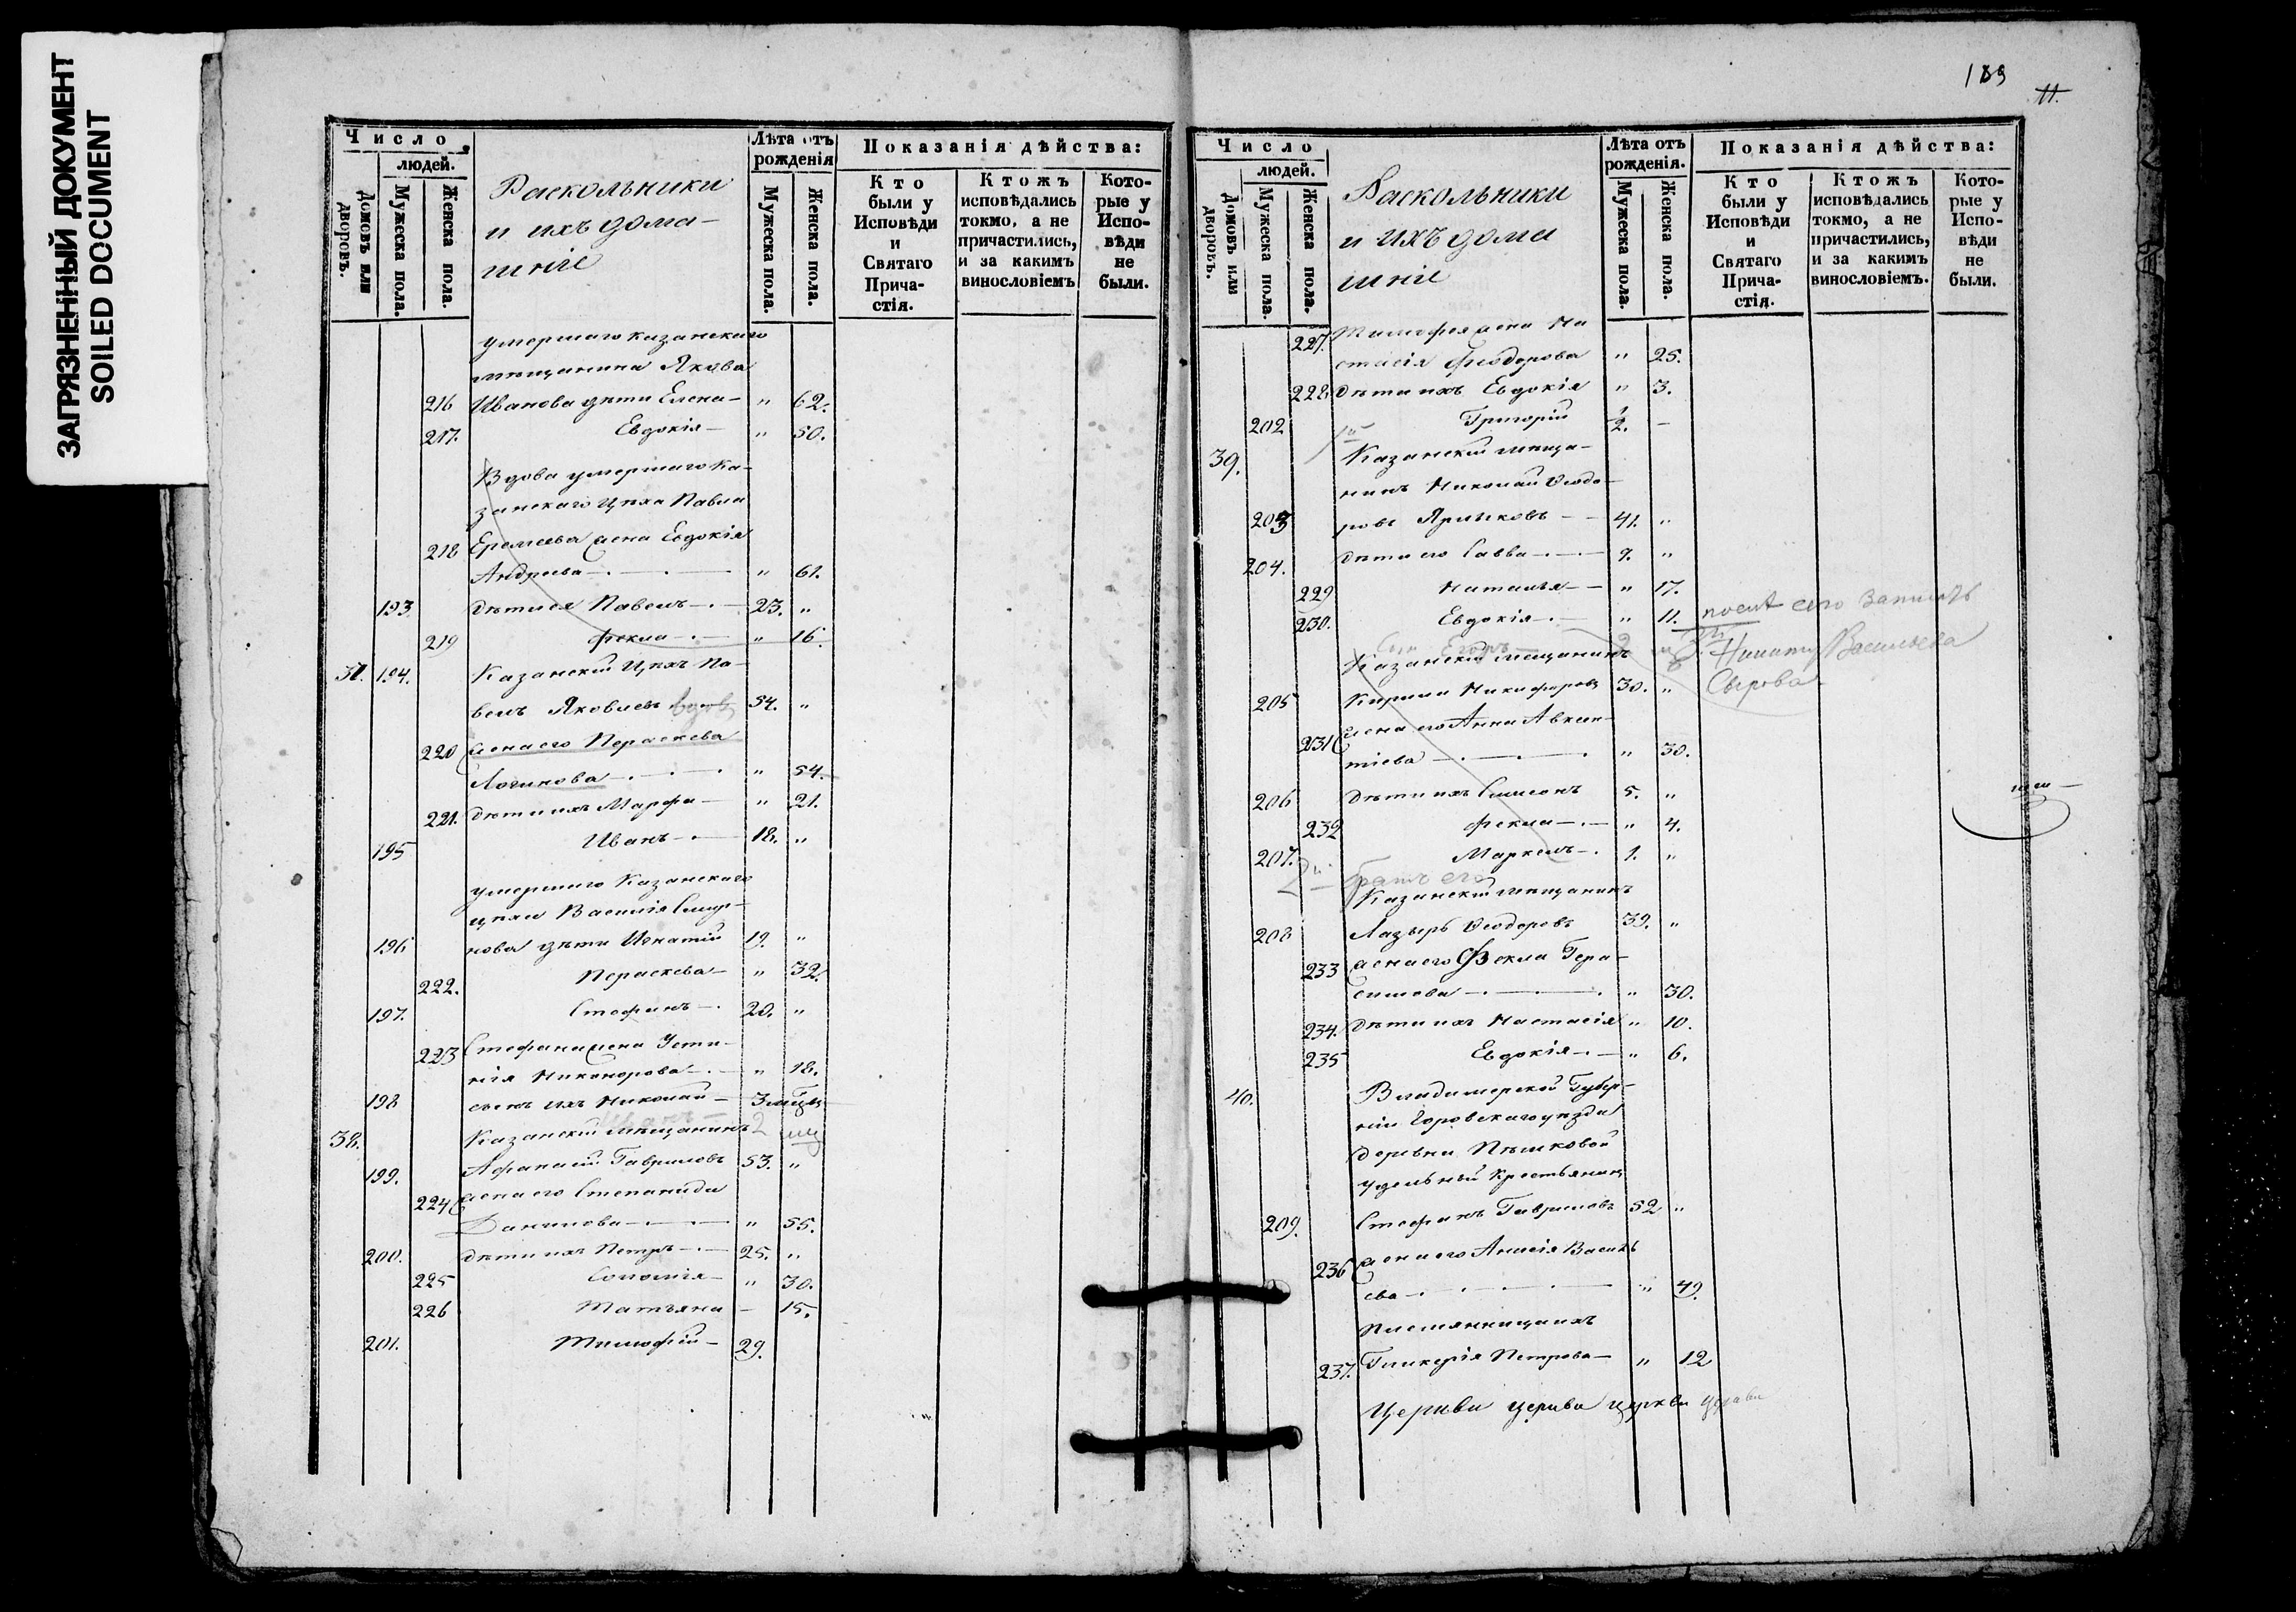 ЗАГРЯЗНЕННЫЙ ДОКУМЕНТ
SOILED DOCUMENT
Число
людей.
Домовъ или дворовъ.
Мужеска пола.
Женска пола.
Раскольники
и ихъ дома-
шніе
Лѣта отъ рожденія
Мужеска пола.
Женска пола.
Показанія дѣйства:
Кто были у Исповѣди и Святаго Прича-стія.
Ктожъ исповѣдались токмо, а не причастились, и за какимъ винословіемъ
Кото-рые у Испо-вѣди не были.
умершаго казанскаго
мѣщанина Якова
216 Иванова дѣти Елена — " 62.
217. Евдокія — " 50.
Вдова умершаго Ка-
занскаго Цѣха Павла
218 Еремеева жена Евдокія
Андреева — " 61.
193. дѣти ея Павелъ — 23. "
219 Фекла — " 16
37. 194. Казанскій Цѣха Па-
велъ Яковлевъ вдовъ 54. "
220 жена его Параскева
Логинова — " 54.
221. дѣти ихъ Марфа — " 21.
195 Иванъ — 18. "
умершаго Казанскаго
цѣха Василія Смир-
196 нова дѣти Игнатій 19. "
222. Параскева — " 32.
197. Стефанъ — 20. "
223 Стефана жена Усти-
нія Никонорова — " 18.
198 сынъ ихъ Николай — 3 мѣсц
38. Казанскій мѣщанинъ 2
199. Афанасій Гавриловъ 53. "
224 жена его Степанида
Данилова — " 55.
200. дѣти ихъ Петръ — 25. "
225 Соломія — " 30.
226 Татьяна — 15.
201. Тимофей — 29.
189
11.
Число
людей.
Домовъ или дворовъ.
Мужеска пола.
Женска пола.
Раскольники
и ихъ дома
шніе
Лѣта отъ рожденія.
Мужеска пола.
Женска пола.
Показанія дѣйства:
Кто были у Исповѣди и Святаго Прича-стія.
Ктожъ исповѣдались токмо, а не причастились, и за какимъ винословіемъ.
Кото-рые у Испо-вѣди не были.
227. Тимофея жена На
стасія Феодорова " 25.
228 дѣти ихъ Евдокія " 3.
202 Григорій 1/2. —
39. Казанскій мѣща-
нинъ Николай Ѳеодо-
203 ровъ 41. "
204. дѣти его Савва — 7. "
229 Наталья — " 17.
230. Евдокія — " 11. его записать
сынъ Егоръ — 2
Казанскій мѣщанинъ Никиту Васильева
205 Кирила Никифоровъ 30. " Сырова
231 жена его Анна Авксен-
тіева — " 30.
206 дѣти ихъ Симеонъ 5. "
232 Фекла — " 4.
207. Маркелъ — 1. "
2й братъ его
Казанскій мѣщанинъ
208 Лазырь Ѳеодоровъ 39. "
233 жена его Фекла Гера-
симова — " 30.
234. дѣти ихъ Настасія " 10.
235 Евдокія — " 6.
40. Владимерской Губер-
ніи Горовскаго уѣзда
деревни Пѣшковой
удельный Крестьянинъ
209. Стефанъ Гавриловъ 52 "
236 жена его Анисія Василь
ева — " 49.
Племянница ихъ
237. Гликерія Петрова — " 12
Церкви церкви церкви церкви